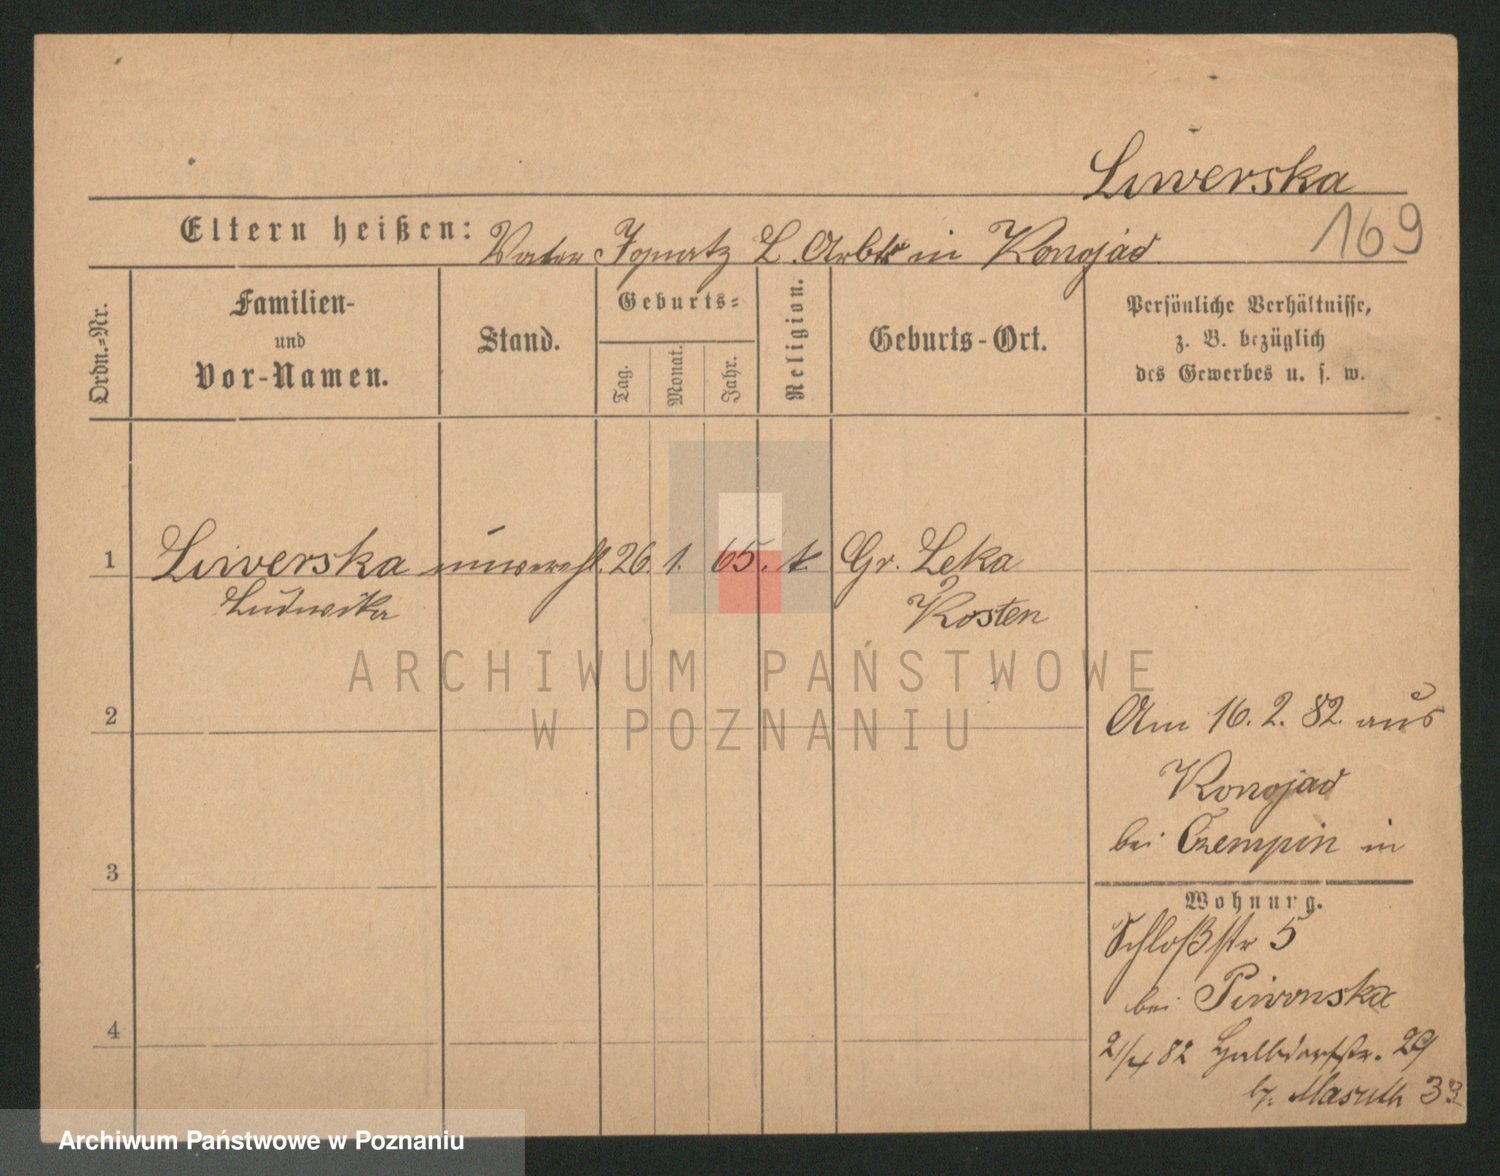 Liwerska
169
Eltern heißen: Vater Ignatz L. Arbtr in Konojad
Ordn.-Nr.
Familien-
und
Vor-Namen.
Stand.
Geburts-
Tag.
Monat.
Jahr.
Religion.
Geburts-Ort.
Persönliche Verhältnisse,
z. B. bezüglich
des Gewerbes u. s. w.
1 Liwerska unvereh. 26. 1. 65. k. Gr. Leka
Ludwika Kosten
ARCHIWUM PAŃSTWOWE
W POZNANIU
2
Am 16. 2. 82. aus
Konojad
bei Czempin in
3
Wohnung.
Schloßstr 5
bei Piwonska
4
2/4 82 Halbdorfstr. 29
b.
Archiwum Państwowe w Poznaniu